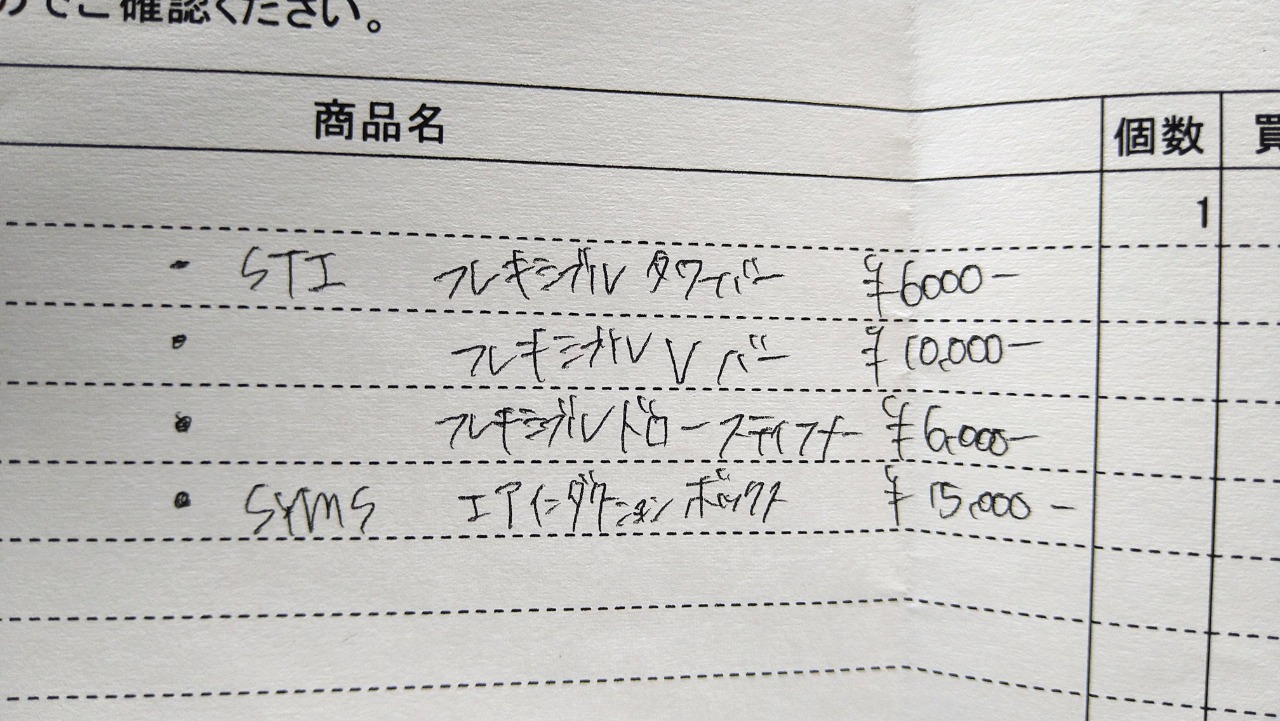 のでご確認ください。
商品名 個数 買
1
・ STI フレキシブル タワーバー ¥6000-
・ フレキシブル V バー ¥10,000-
・ フレキシブルドロースティフナー ¥6,000-
・ SYMS エアインダクションボックス ¥15,000-